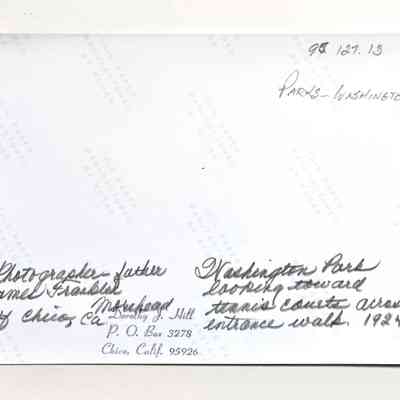 98 127.13
PARKS-WASHINGTO
Photographer-father
ames Franklin
Morehead
of Chico, Ca.
Dorothy J. Hill
P. O. Box 3278
Chico, Calif. 95926
Washington Park
looking toward
tennis courts across
entrance walk. 1924